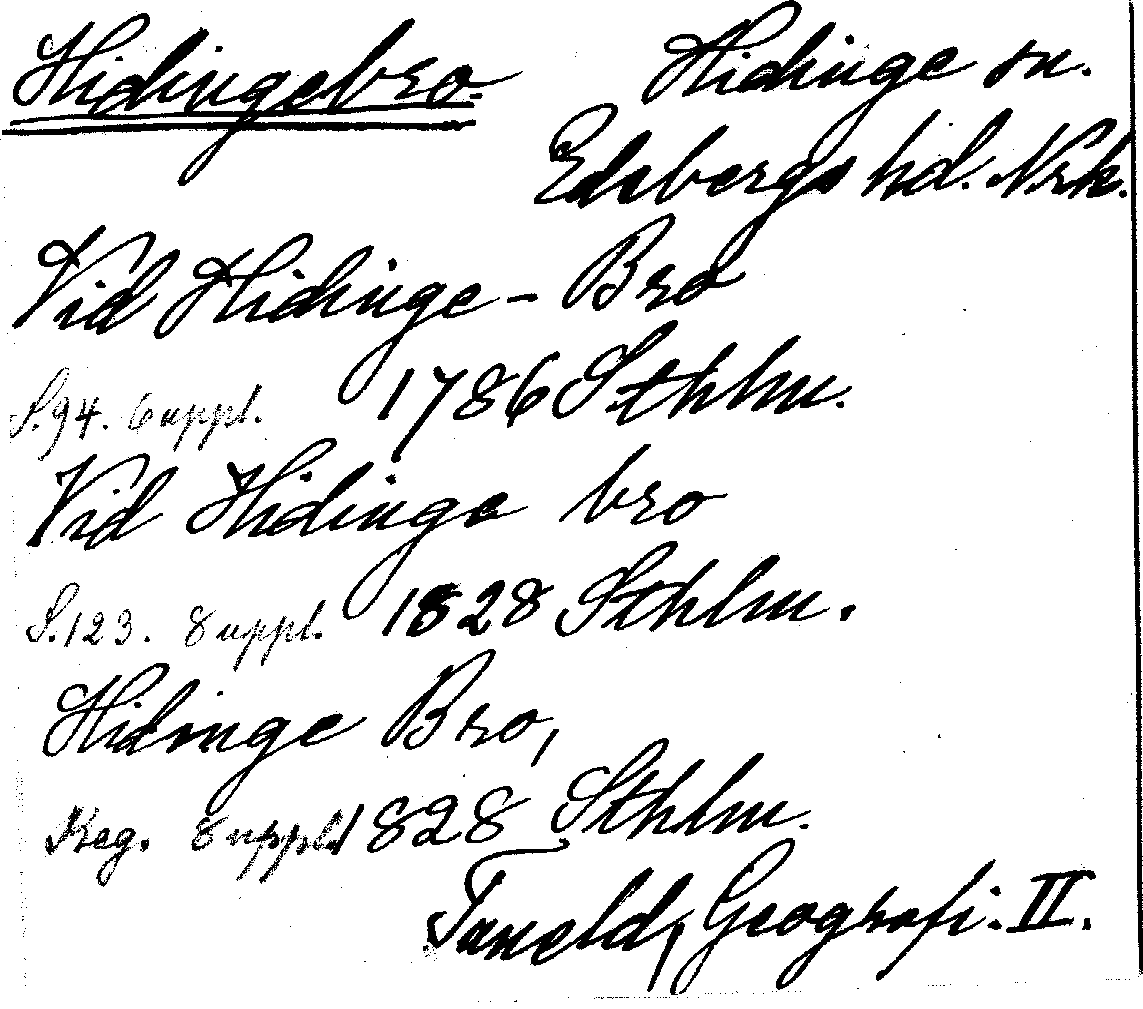 Hidingebro. Hidinge sn.
Edsbergs hd. Nrk.
Vid Hidinge-Bro
S.94. 6 uppl. 1786 Sthlm.
Vid Hidinge bro
S.123. 8 uppl. 1828 Sthlm.
Hidinge Bro,
Reg. 8 uppl. 1828 Sthlm.
Tuneld, Geografi. II.